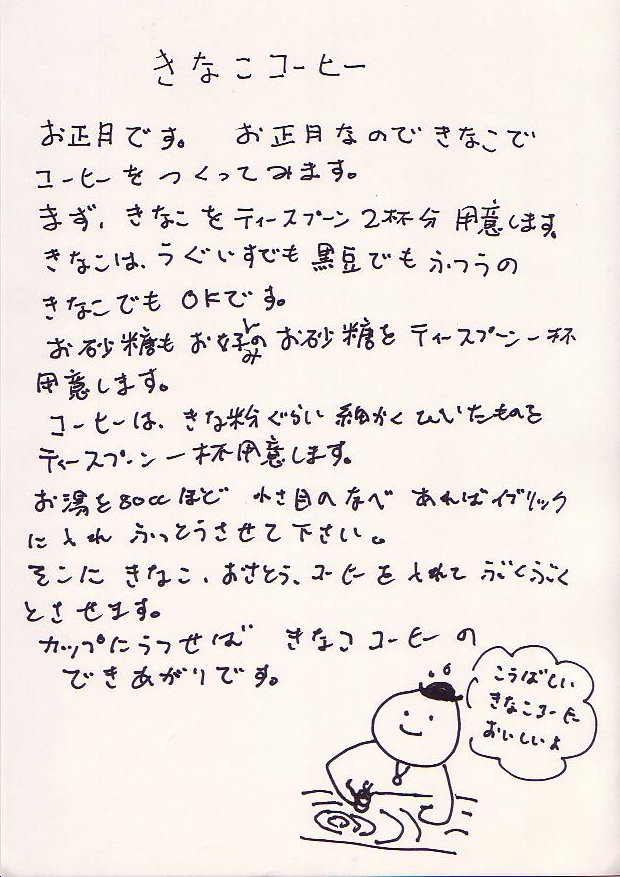 きなこコーヒー
お正月です。 お正月なので きなこで
コーヒーを つくってみます。
まず、きなこを ティースプーン 2杯分 用意します。
きなこは、うぐいすでも 黒豆でも ふつうの
きなこでも OKです。
お砂糖も お好みの お砂糖を ティースプーン一杯
用意します。
コーヒーは、きな粉ぐらい 細かく ひいたものを
ティースプーン 一杯用意します。
お湯を80ccほど 小さ目のなべ あればイブリック
に 入れ ふっとうさせて 下さい。
そこに きなこ、おさとう、コーヒーを 入れて ぶくぶく
とさせます。
カップにうつせば きなこ コーヒーの
できあがりです。
こうばしい
きなこコーヒー
おいしいよ